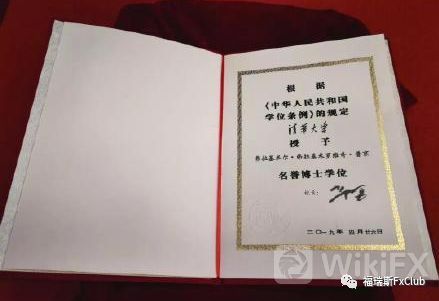 根据
《中华人民共和国
学位条例》的规定
清华大学
授予
弗拉基米尔·弗拉基米罗维奇·普京
名誉博士学位
校长：
二〇一九年 四月廿六日
WikiFX
福瑞斯FxClub